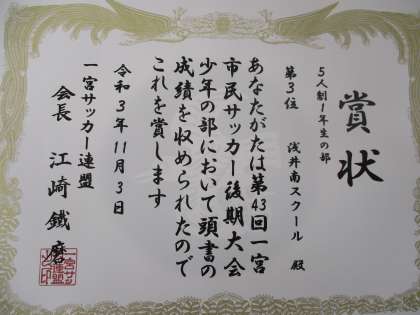 賞状
5人制1年生の部
第3位 浅井南スクール 殿
あなたがたは第43回一宮
市民サッカー後期大会
少年の部において頭書の
成績を収められたので
これを賞します
令和3年11月3日
一宮サッカー連盟
会長 江崎鐵磨